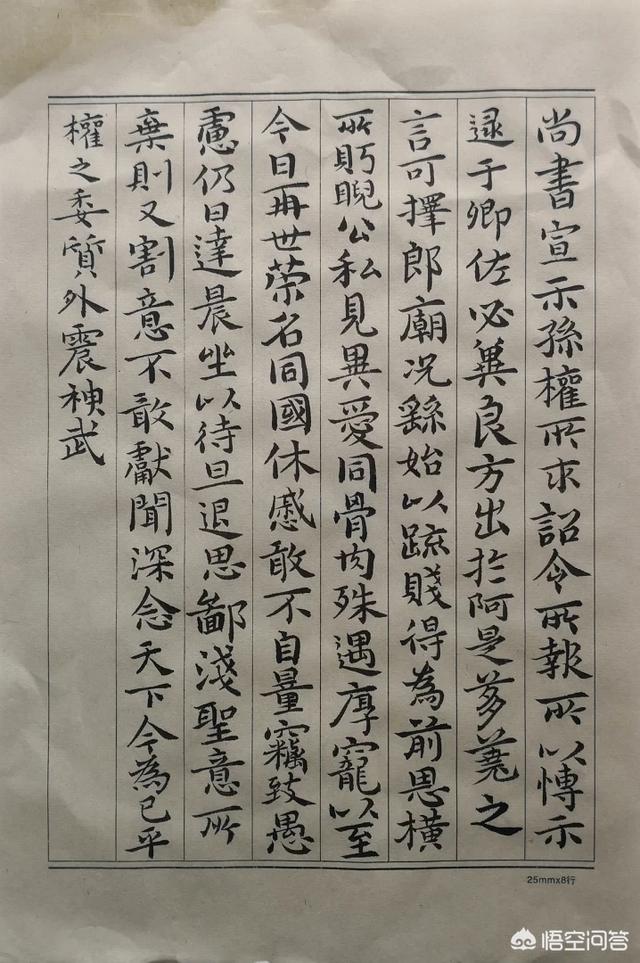 尚書宣示孫權所求詔令所報所以博示
逮于卿佐必兾良方出於阿是芻蕘之
言可擇郎廟况繇始以疏賤得為前恩橫
所眄睨公私見異愛同骨肉殊遇厚寵以至
今日再世榮名同國休慼敢不自量竊致愚
慮仍日達晨坐以待旦退思鄙淺聖意所
棄則又割意不敢獻聞深念天下今為已平
權之委質外震神武
25mmx8行
悟空问答